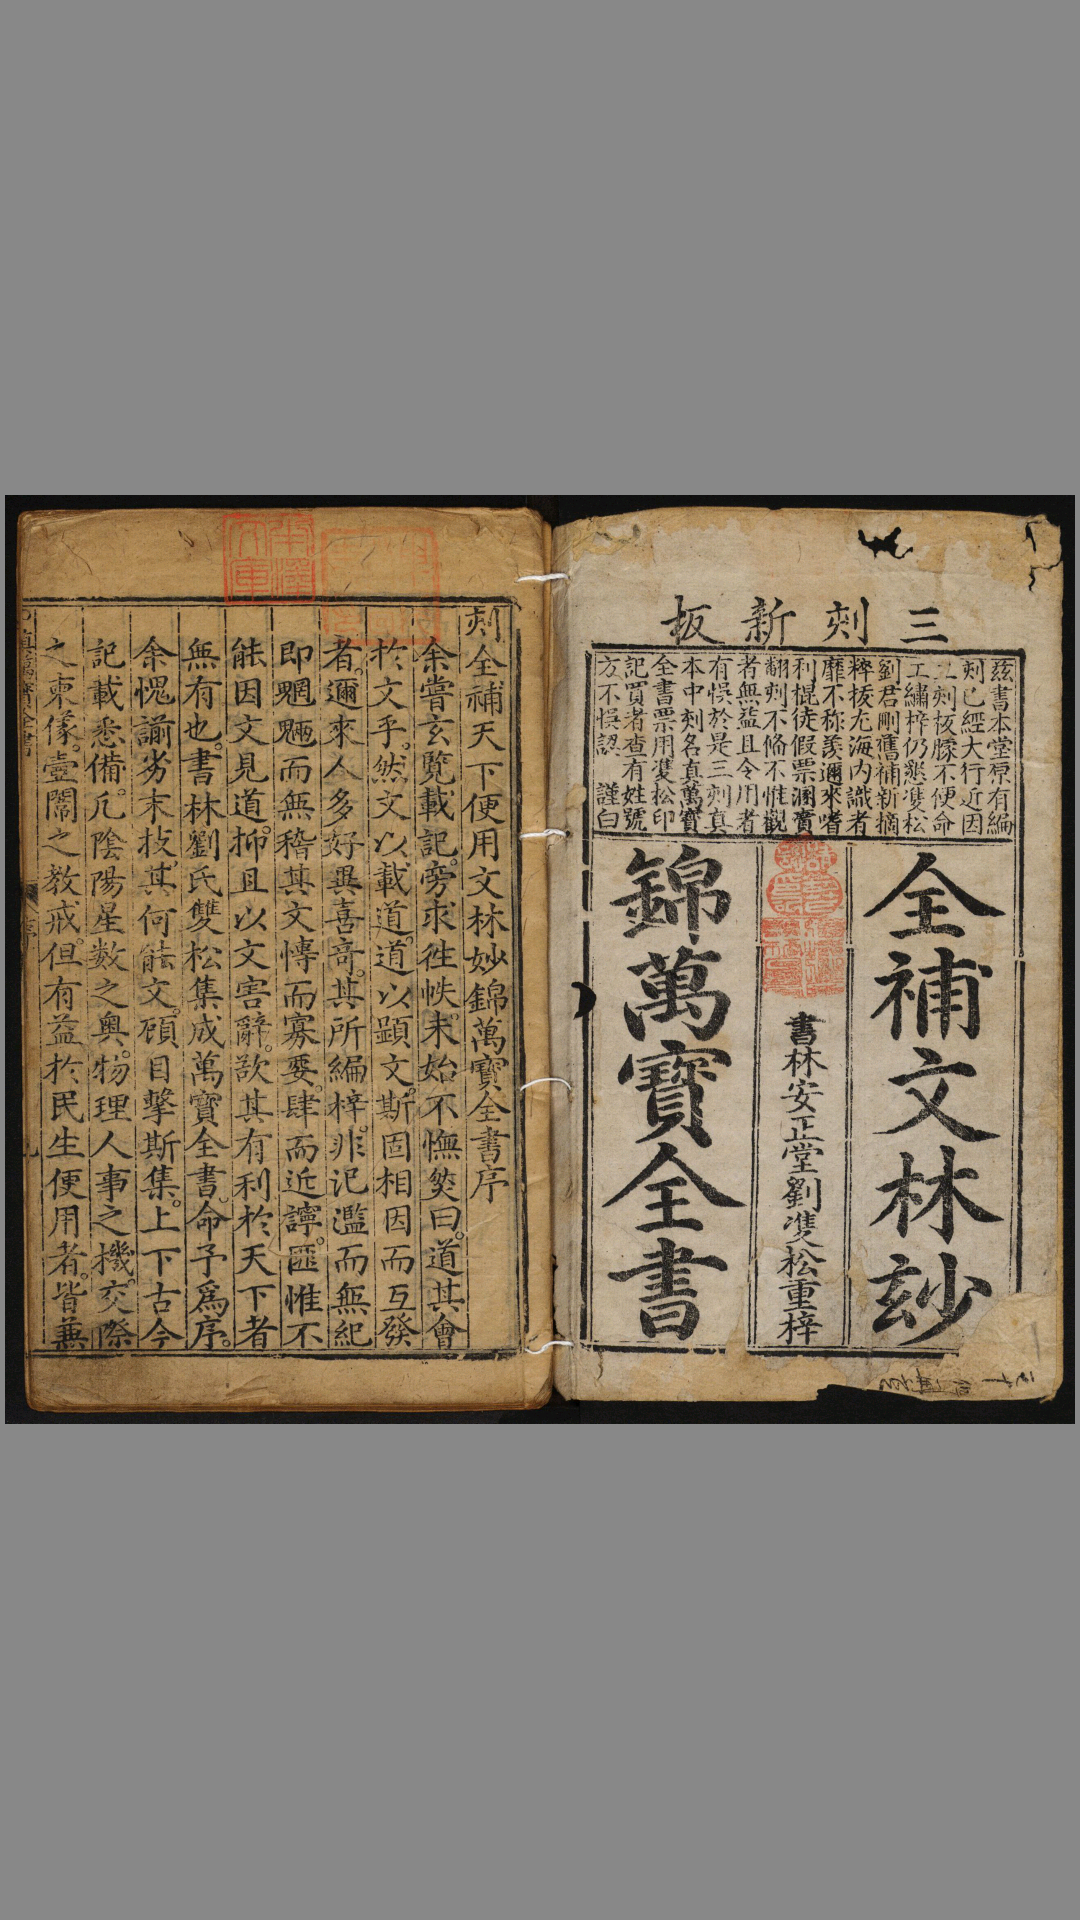 三刻新板
茲書本堂原有編
刻已經大行近因
二刻板朦不便命
工繡梓仍懇雙松
劉君刪舊補新摘
粹拔尤海內識者
靡不称羨邇來嗜
利棍徒假票溷賣
翻刻不脩不惟觀
者無益且令用者
有悞於是三刻真
本中刻名真萬寶
全書票用雙松印
記買者查有姓號
方不悞認 謹白
全補文林玅
書林安正堂劉雙松重梓
錦萬寶全書
刻全補天下便用文林妙錦萬寶全書序
余嘗玄覽載記。旁求徃帙。未始不憮然曰。道其會
於文乎。然文以載道。道以顕文。斯固相因而互發
者。邇來人多好異喜竒。其所編梓。非汜濫而無紀
即魍魎而無稽。其文慱而寡要。肆而近諄。匪惟不
能因文見道。抑且以文害辭。欲其有利於天下者
無有也。書林劉氏雙松集成萬寶全書。命予為序。
余愧譾劣末技。其何能文。碩目擊斯集。上下古今
記載悉備。凢陰陽星數之奧。物理人事之機。交際
之柬儀。壼閫之教戒。但有益於民生便用者。皆兼
本澤文庫